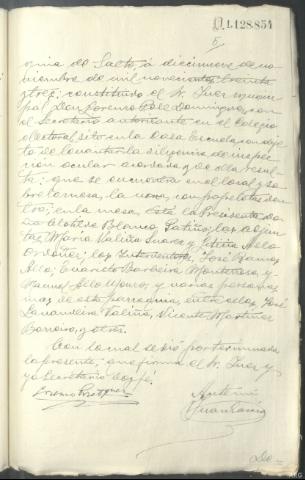 1.128.854
de Saleta diecinueve de no-
viembre de mil novecientos treinta
y tres; constituido el Sr. Juez munici-
pal Don Lorenzo Domínguez, con
el Secretario autorizante en el Colegio
electoral sito en la Casa Escuela, con obje-
to de levantar la diligencia de inspec-
ción ocular acordada, y de ella resul-
ta: que se encuentra en el local y so-
bre la mesa, la urna, con papeletas den-
tro; en la mesa, está la Presidente Do-
ña Blanco Patiño, los adjun-
tos María Valiña Suarez y
Ordóñez; los Interventores, José Ramos
Evaristo Barbeira Montenos, y
Manuel Mouro, y varias personas
mas de esta parroquia, entre ellas José
Lavandeira Valiña, Vicente Martínez
y otros.
Con lo cual se dió por terminada
la presente; que firma el Sr. Juez y
yo Secretario doy fé.
Antemi
Juan